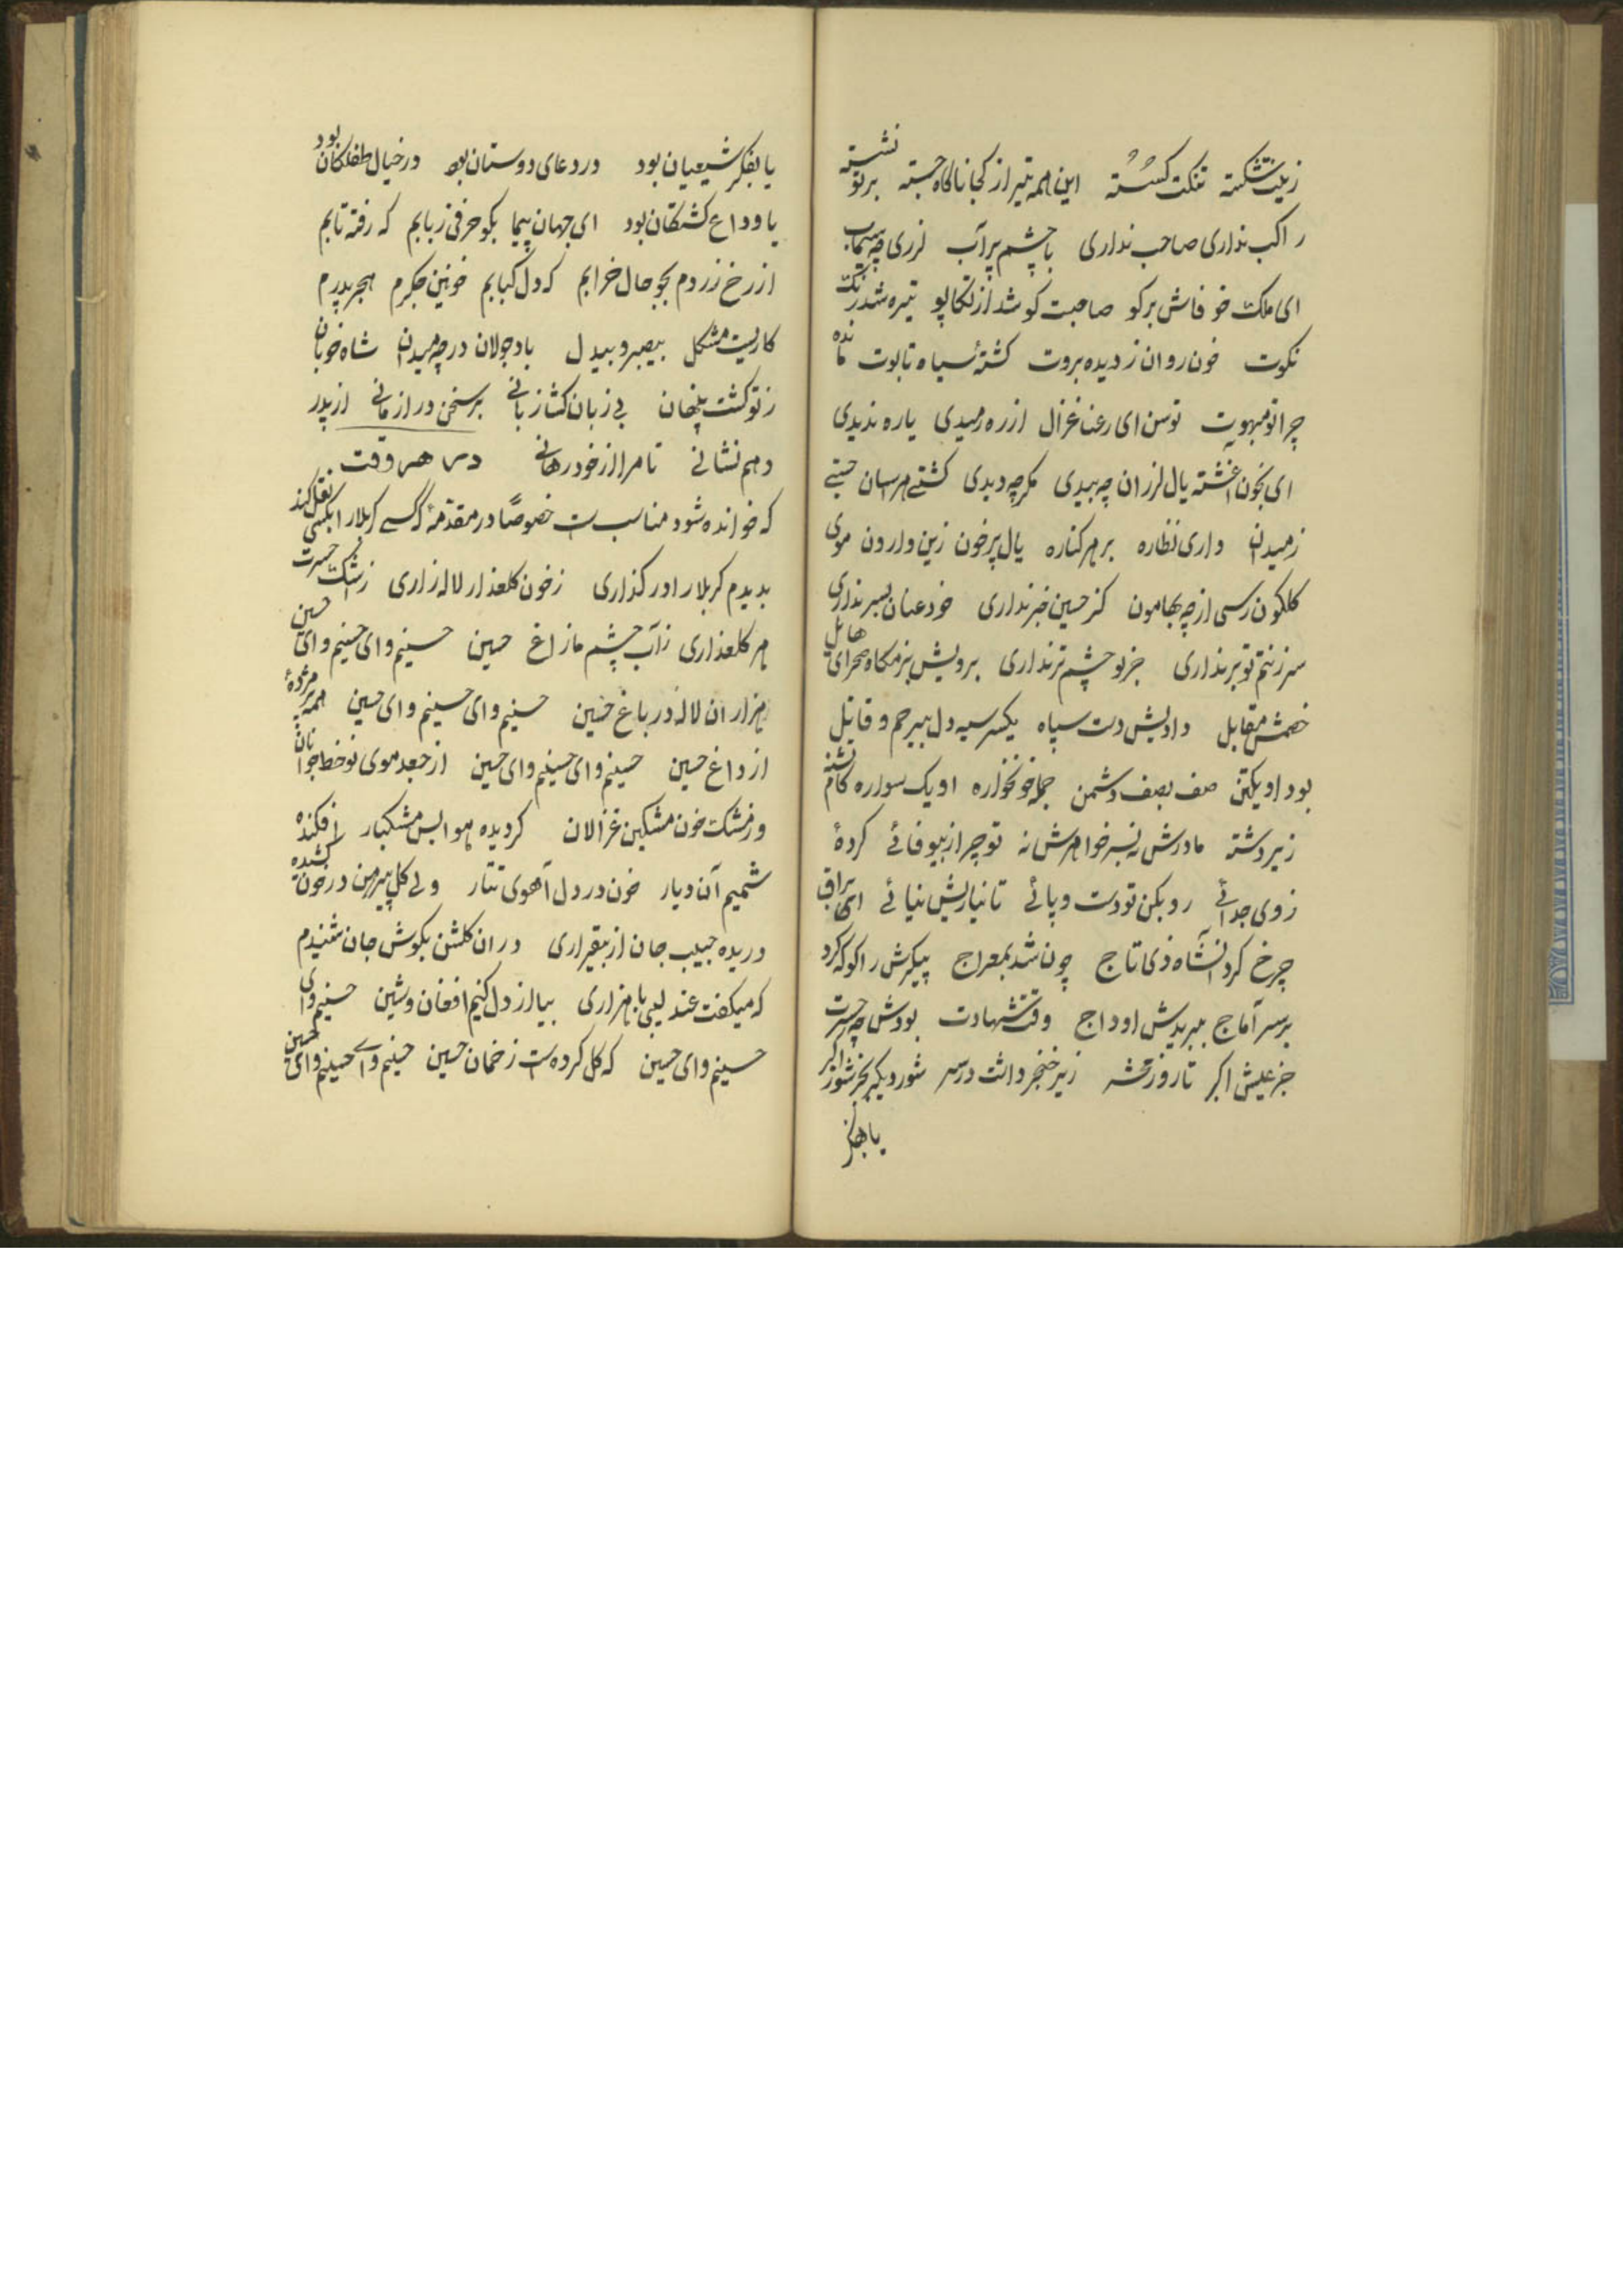 زینت شکسته تنکت کسسته این همه تیر از کجا ناکاه جسته بر تو نشسته
راکب نداری صاحب نداری با چشم پر آب لرزی چه سیماب
ای ملک خو فاش برکو صاحبت کو شد از تکاپو تیره شد رنک
نکوت خون روان ز دیده بروت کشتهٔ سیاه تابوت مانده
چرا تو مبهوت توسن ای رعنا غزال از ره رمیدی یا ره ندیدی
ای بخون اغشته یال لرزان چه بیدی مکر چه دیدی کشتی هراسان جستی
ز میدان واری نظاره بر هر کناره یال پر خون زین وارون موی
کلکون رسی از چه بهامون کز حسین خبر نداری خود عنان بسر نداری
سر ز ننم تو بر نداری جز تو چشم تر نداری برویش بزمکاه صحرای هائل
خصمش مقابل دادیش دست سپاه یکسر سیه دل بیرحم و قاتل
بود او یکتن صف بصف دشمن جمله خونخواره او یک سواره کام تشنه
زیر دشته مادرش نه بسر خواهرش نه تو چرا از بیوفائے کردهٔ
ز وی جدائے رو بکن تو دست و پائے تا نیازیش نیائے ای براق
چرخ کرد انشاه ذی تاج چون شد بمعراج پیکرش را کو که کرد
بر سر آماج ببریدش اوداج وقت شهادت بودش چه حسرت
جز عیش اکبر تا روز محشر زیر خنجر داشت در سر شور دیکر بجز شور اکبر
یا بفکر
یا بفکر شیعیان بود در دعای دوستان بود در خیال طفلکان بود
یا وداع کشتکان بود ای جهان پیما بکو حرفی ز بابم که رفته تابم
از رخ زردم بجو حال خرابم که دل کبابم خونین جکرم هجر پدرم
کاریست مشکل بیصبر و بیدل باد جولان در چه میدان شاه خوبان
ز تو کشت پنهان بی زبان کشا زبانے بر سخن در از مانے از پدر
دهم نشانے تا مرا از خود رهانے در هر وقت
که خوانده شود مناسب ست خصوصًا در مقدمهٔ که کسے کربلا را بکسی نقل کند
بدیدم کربلا را در کذاری ز خون کلعذار لاله زاری ز اشک حسرت
هر کلعذاری ز آب چشم ما زاغ حسین حسینم وای حسینم وای حسین
هزاران لاله در باغ حسین حسینم وای حسینم وای حسین همه پژمردهٔ
از داغ حسین حسینم وای حسینم وای حسین از جعد موی نوخط جوانان
وز مشک خون مشکین غزالان کردیده هوا بس مشکبار افکنده
شمیم آن دیار خون در دل آهوی تتار ولے کل پیرهن در خون کشیده
دریده جیب جان از بیقراری در ان کلشن بکوش جان شنیدم
که میکفت عندلیبی با هزاری بیا از دل کنیم افغان و شین حسینم وای
حسینم وای حسین که کل کرده ست زخمان حسین حسینم وای حسینم وای حسین